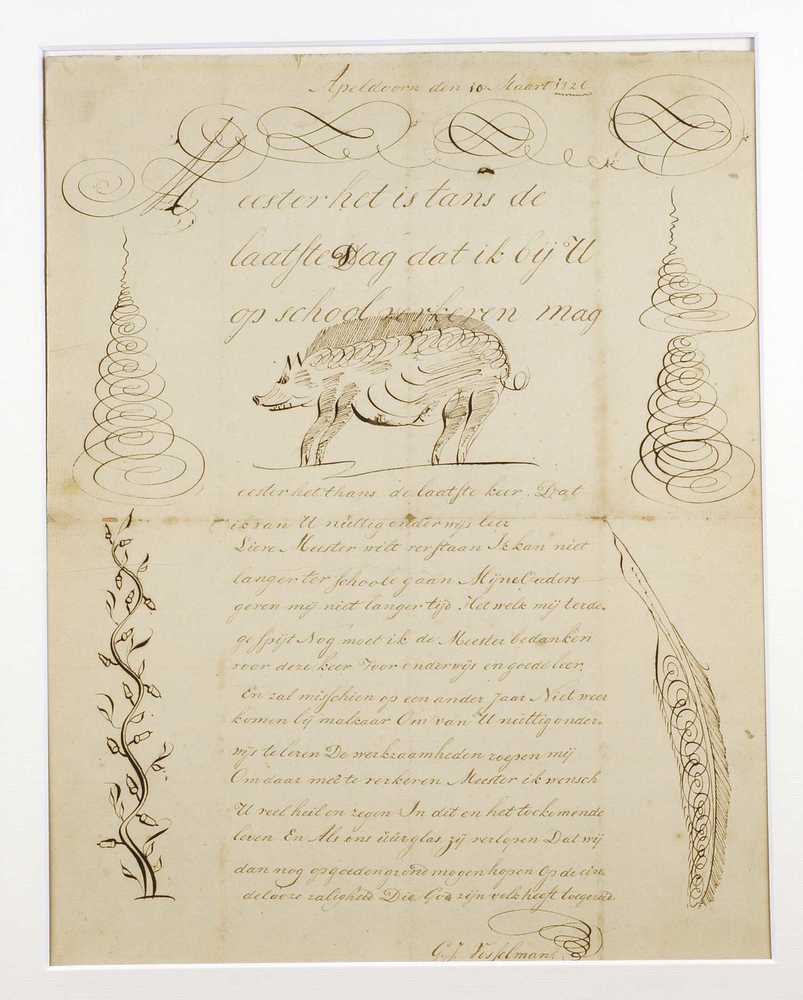 Apeldoorn den 10 Maart 1826
Meester het is tans de
laatste Dag dat ik bij U
op school verkeren mag
eester het thans de laatste keer. Dat
ik van U nuttig onderwijs leer
Lieve Meester wilt verstaan Ik kan niet
langer ter schoole gaan Mijne Ouders
geven mij niet langer tijd Het welk mij terde-
ge spijt Nog moet ik de Meester bedanken
voor deze keer Voor onderwijs en goede leer,
En zal misschien op een ander Jaar Niet weer
komen bij malkaar Om van U nuttig onder-
wijs te leren De werkzaamheden roepen mij
Om daar meê te verkeren Meester ik wensch
U veel heil en zegen In dit en het toekomende
leven En Als ons uurglas zij verlopen Dat wij
dan nog op goeden grond mogen hopen Op de einde
delooze zaligheid Die God zijn volk heeft toegezeid
G.J. Visselman